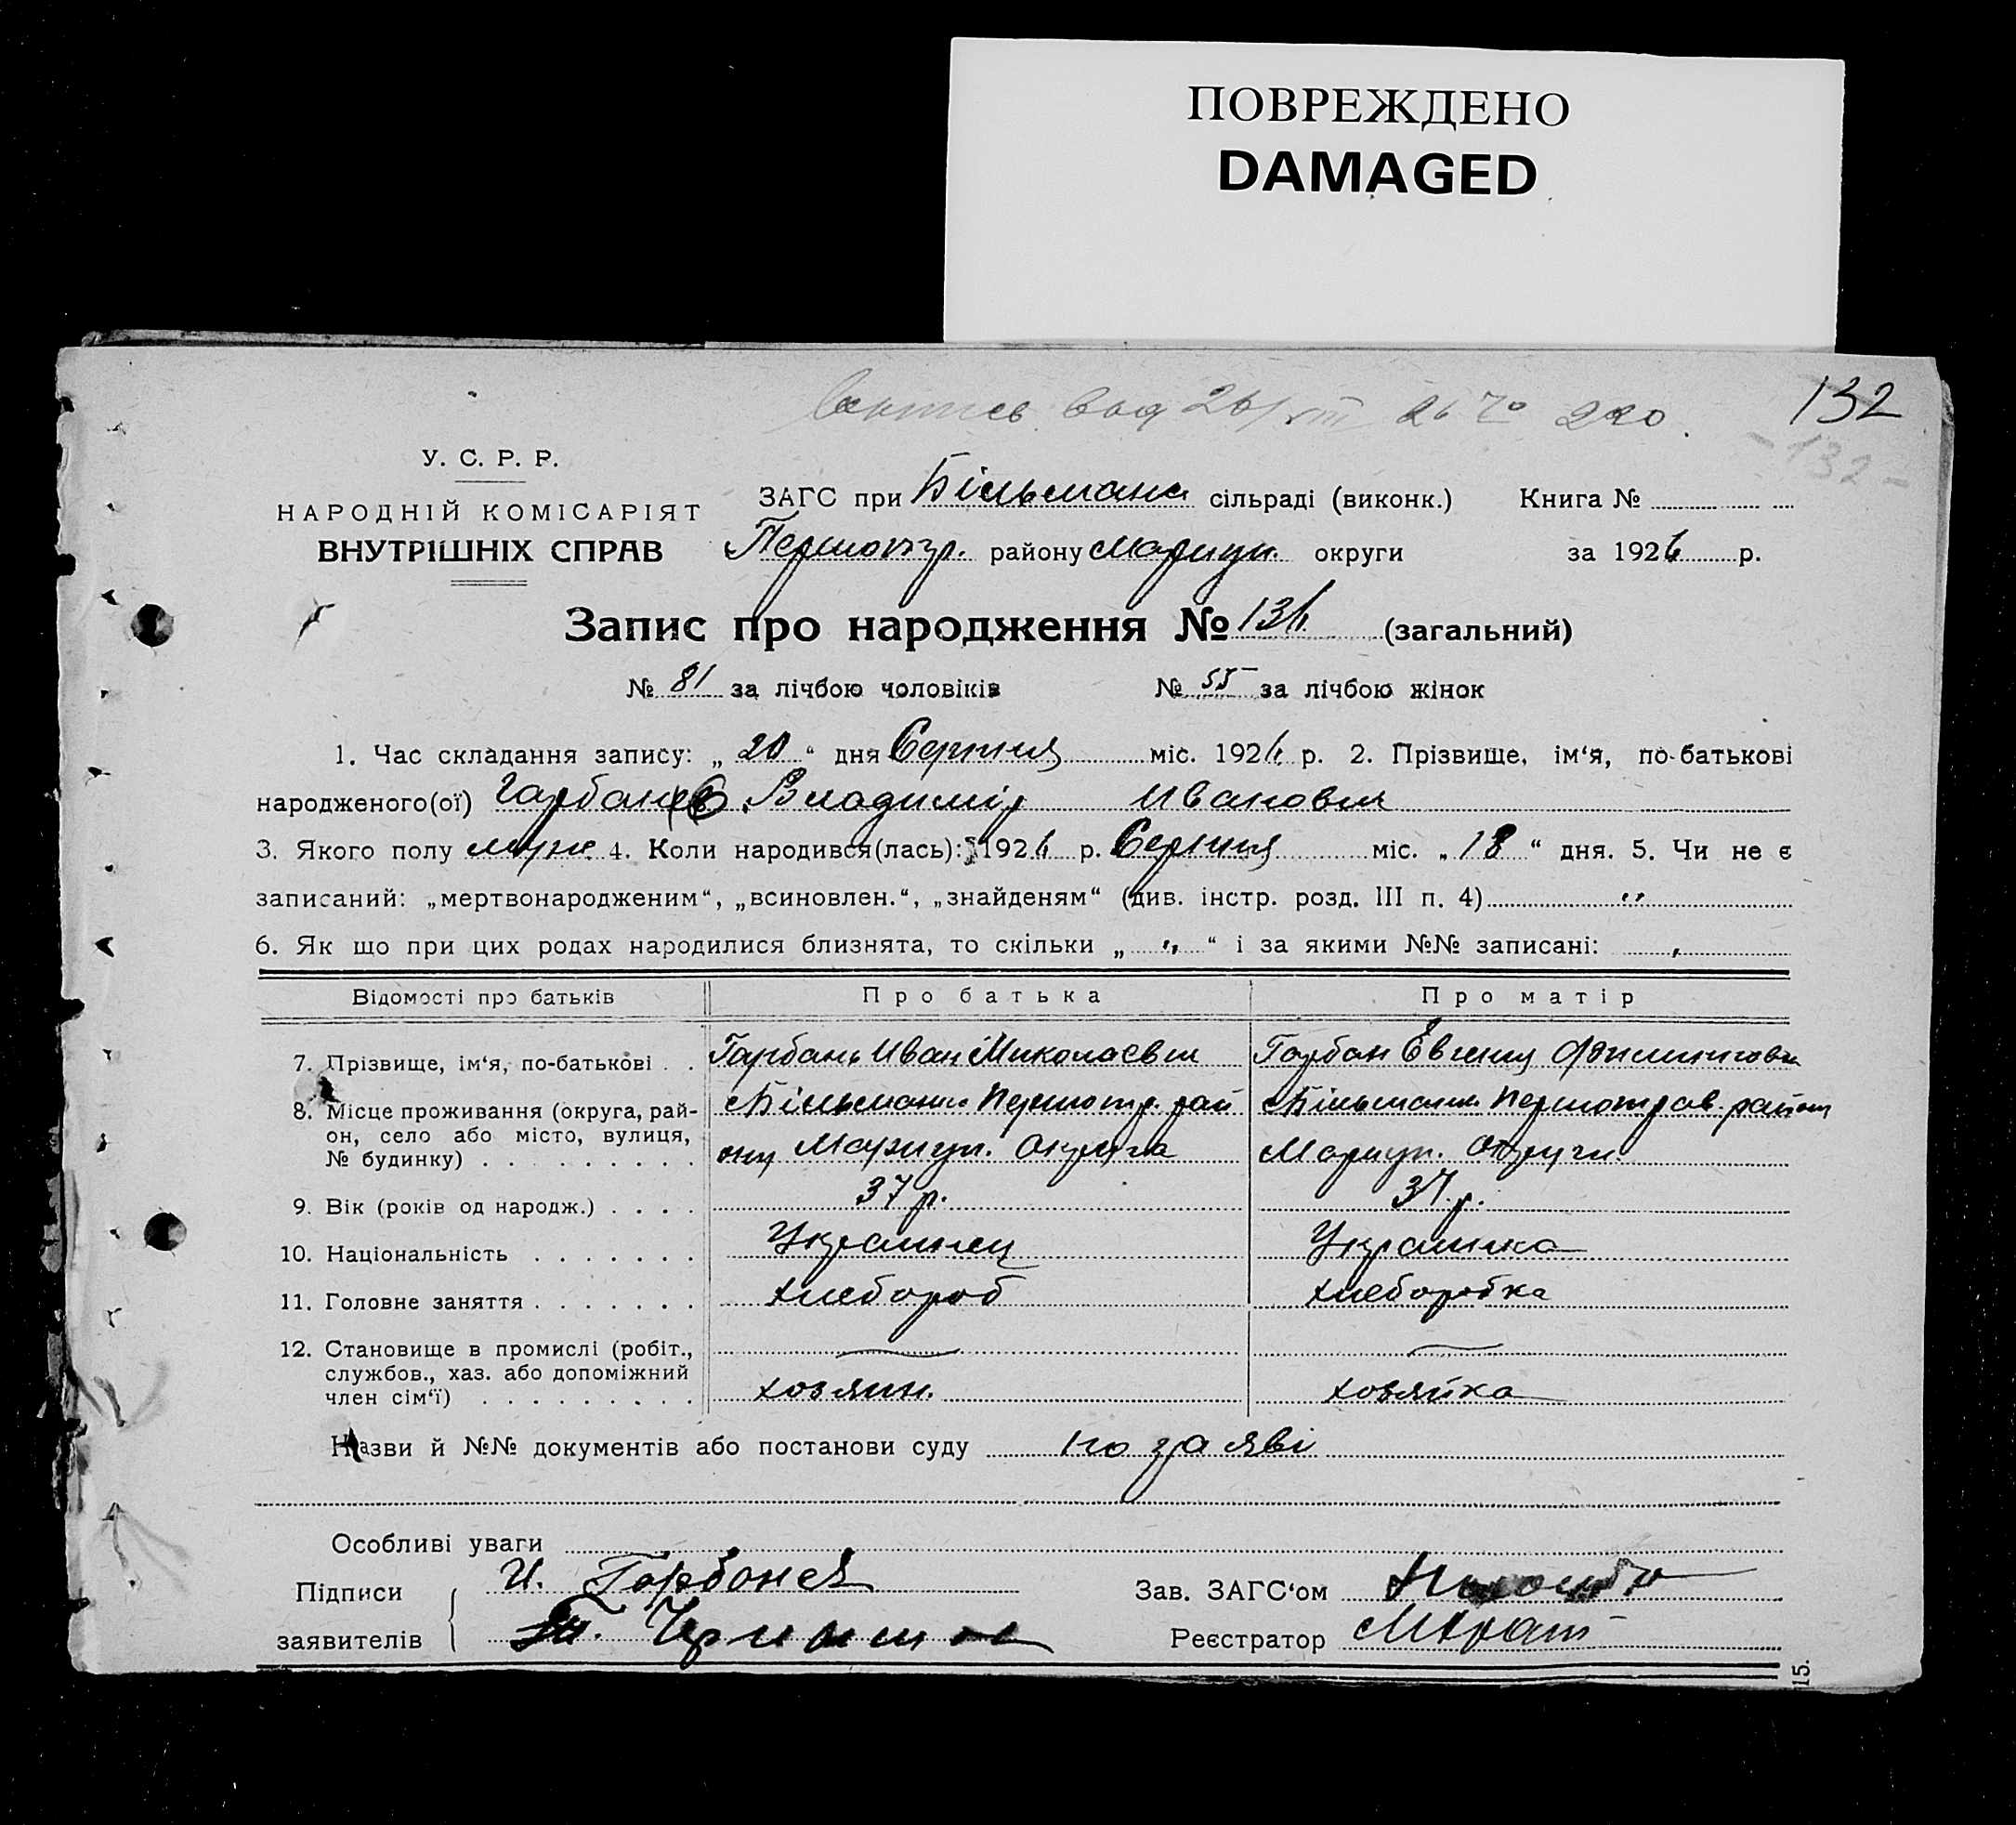 ПОВРЕЖДЕНО
DAMAGED
132
- 132 -
У. С. Р. Р.
НАРОДНІЙ КОМІСАРІЯТ
ВНУТРІШНІХ СПРАВ
ЗАГС при Більмана сільраді (виконк.) Книга №
Першотр. району Мариуп. округи за 1926 р.
Запис про народження № 136. (загальний)
№ 81 за лічбою чоловіків № 55 за лічбою жінок
1. Час складання запису: „ 20 “ дня Серпня міс. 1926 р. 2. Прізвище, ім‘я, по-батькові
народженого(ої) Владимір Иванович
3. Якого полу муж. 4. Коли народився(лась): 1926 р. Серпня міс. „ 18 “ дня. 5. Чи не є
записаний: „мертвонародженим“, „всиновлен.“, „знайденям“ (див. інстр. розд. III п. 4) "
6. Як що при цих родах народилися близнята, то скільки „ " “ і за якими №№ записані:
Відомості про батьків Про батька Про матір
7. Прізвище, ім‘я, по-батькові . . Горбань Иван Миколаевич Горбан Евгения
8. Місце проживання (округа, рай- Більманка Першотр. рай Більманка Першотрав. району
он, село або місто, вулиця, ону Мариуп. Округа Мариуп. Округи
№ будинку) . . . . . . . . .
9. Вік (років од народж.) . . . . 37 р. 37 р.
10. Національність . . . . . . . Украинец Украинка
11. Головне заняття . . . . . . . хлебороб хлеборобка
12. Становище в промислі (робіт.,
службов., хаз. або допоміжний
член сім‘ї) . . . . . . . . . хозяин. хозяйка
Назви й №№ документів або постанови суду по заяві
Особливі уваги
Підписи И. Зав. ЗАГС‘ом
заявителів Реєстратор
15.